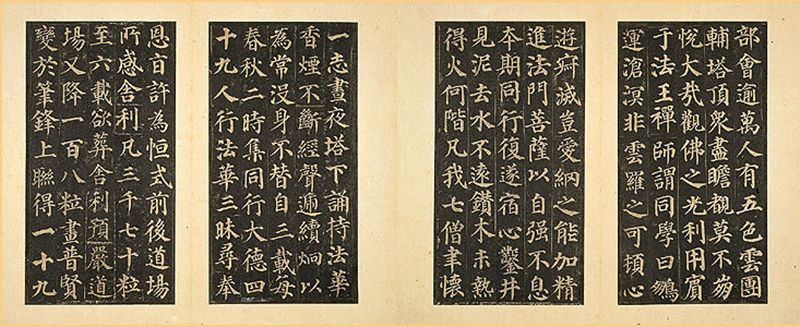 部會逾萬人有五色雲團
輔塔頂衆盡瞻覩莫不崩
悅大哉觀佛之光利用賓
于法王禪師謂同學曰鵬
運滄溟非雲羅之可頓心
遊寂滅豈愛網之能加精
進法門菩薩以自强不息
本期同行復遂宿心鑿井
見泥去水不遠鑽木未熱
得火何階凡我七僧聿懷
一志晝夜塔下誦持法華
香煙不斷經聲遞續炯以
為常没身不替自三載每
春秋二時集同行大德四
十九人行法華三昧尋奉
恩旨許為恒式前後道場
所感舍利凡三千七十粒
至六載欲葬舍利預嚴道
場又降一百八粒畫普賢
變於筆鋒上聯得一十九